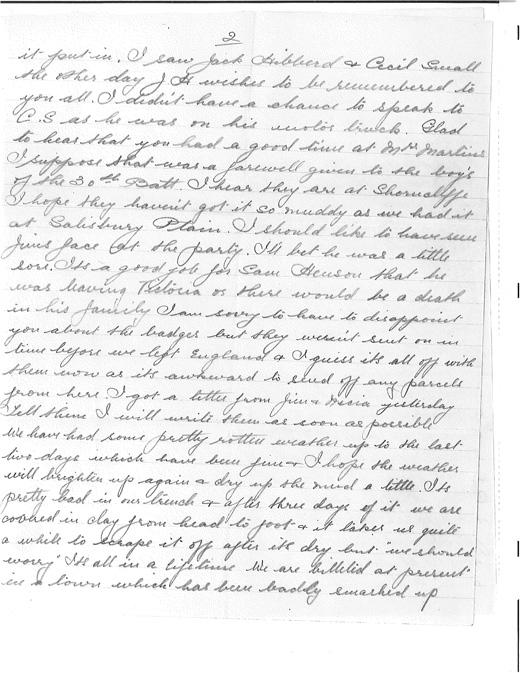 2
it put in. I saw Jack Hibberd & Cecil Small
the other day J H wishes to be remembered to
you all. I didn't have a chance to speak to
C.S as he was on his motor truck. Glad
to hear that you had a good time at Mrs Martins
I suppose that was a farewell given to the boys
of the 30th Batt. I hear they are at Shorncliffe
I hope they haven't got it so muddy as we had it
at Salisbury Plain. I should like to have seen
Jims face at the party. I'll bet he was a little
sore. Its a good job for Sam Henson that he
was leaving Victoria or there would be a death
in his family I am sorry to have to disappoint
you about the badges but they weren't sent on in
time before we left England & I guess its all off with
them now as its awkward to send off any parcels
from here. I got a letter from Jim & yesterday
Tell them I will write them as soon as possible
We have had some pretty rotten weather up to the last
two days which have been fine & I hope the weather
will brighten up again & dry up the mud a little. Its
pretty bad in our trench & after three days of it we are
covered in clay from head to foot & it takes us quite
a while to scrape it off after its dry but "we should
worry" Its all in a lifetime We are billeted at present
in a town which has been baddly smashed up